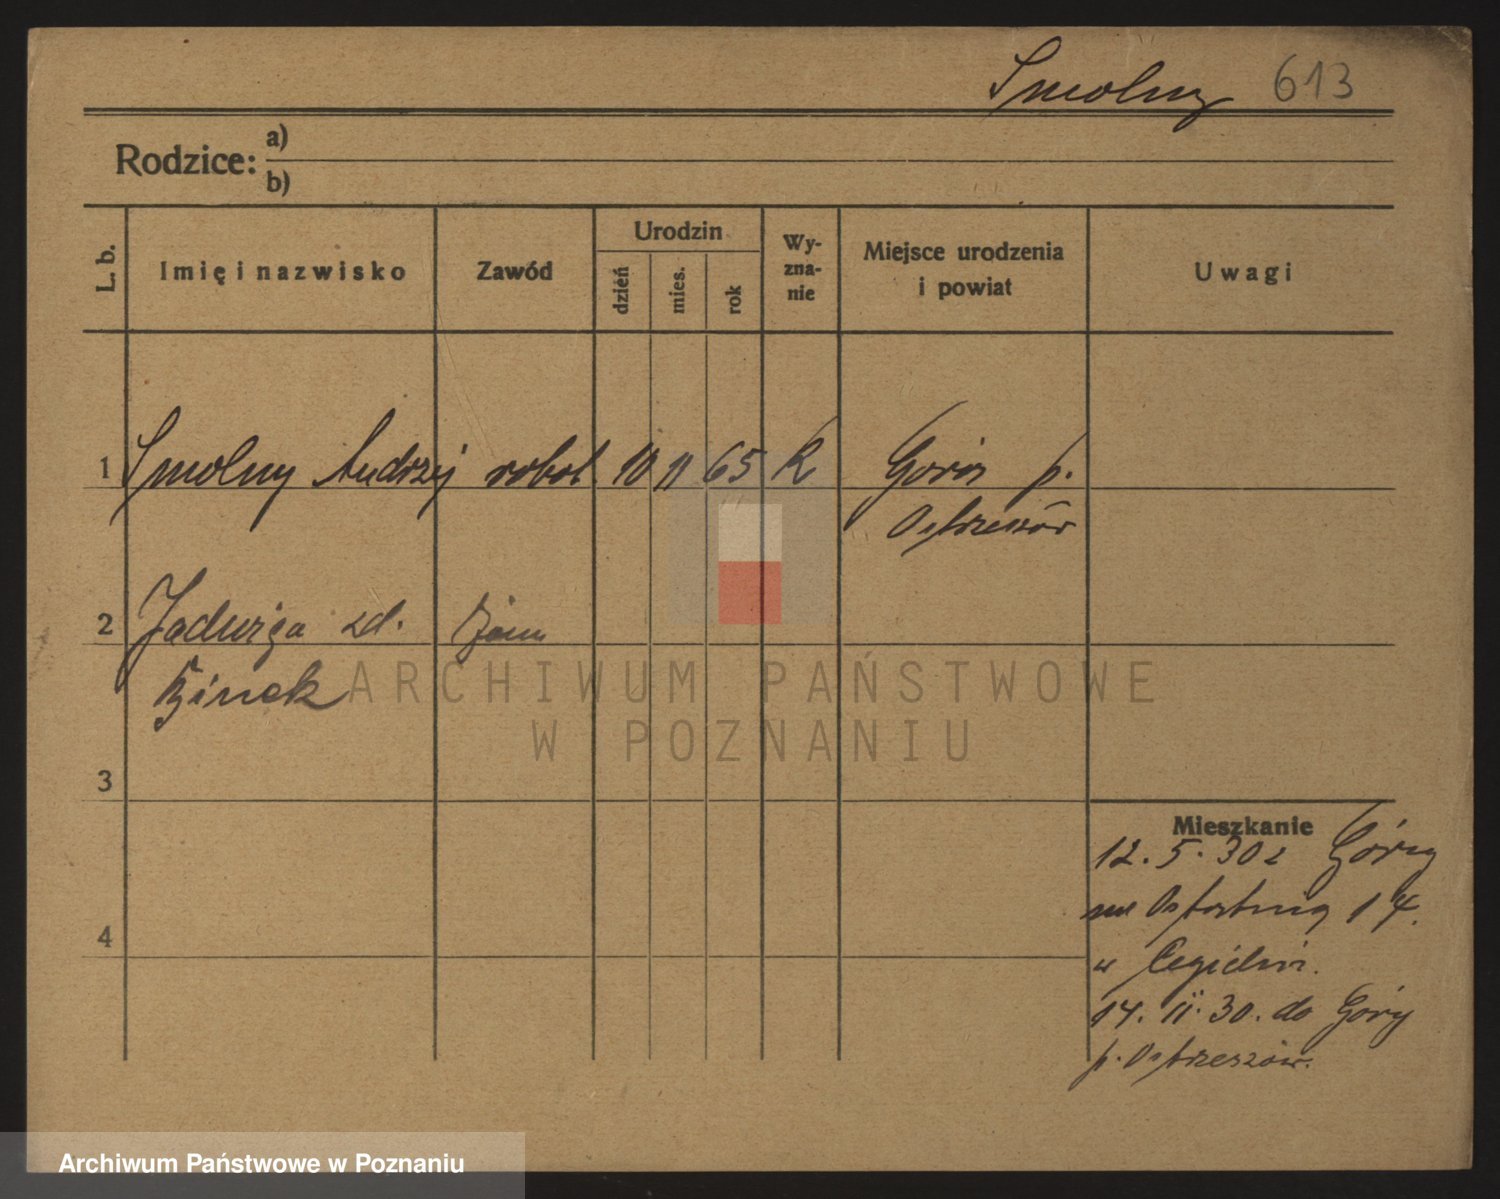 Smolny 613
Rodzice: a)
b)
L. b. Imię i nazwisko Zawód Urodzin dzień mies. rok Wyznanie Miejsce urodzenia i powiat Uwagi
1 Smolny Andrzej robot. 10 11 65 K Góra p.
Ostrzeszów
2 Jadwiga zd.
3
Mieszkanie
12. 5. 30 z Góry
14.
w
4
14. 11. 30. do Góry
p. Ostrzeszów.
ARCHIWUM PAŃSTWOWE
W POZNANIU
Archiwum Państwowe w Poznaniu